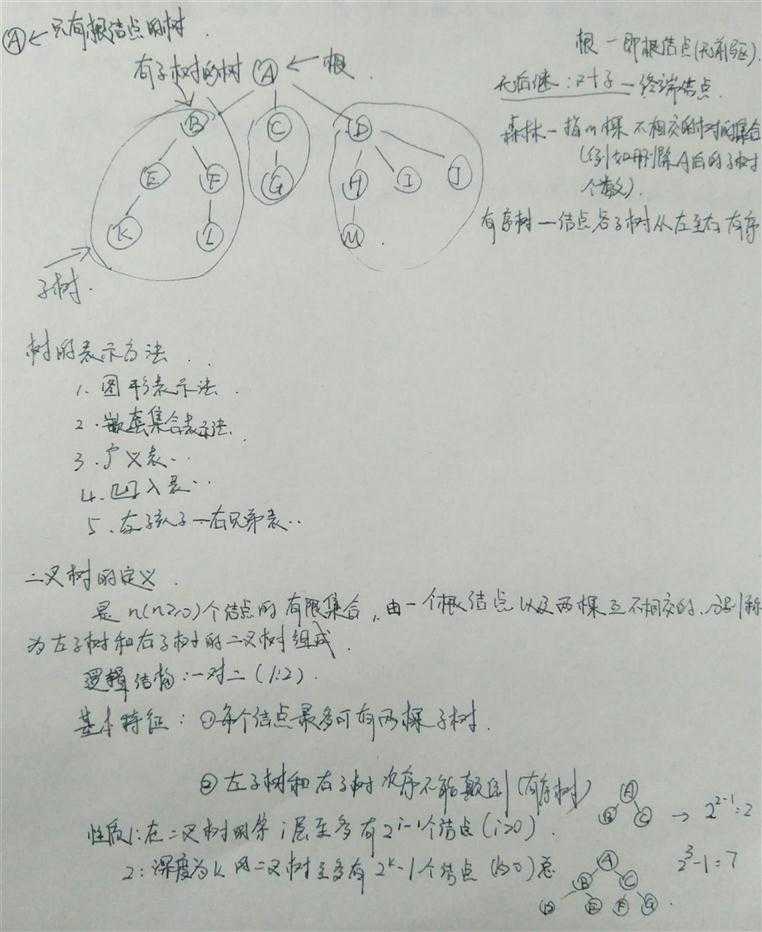 Ⓐ←只有根结点的树.
有子树的树 Ⓐ ← 根.
B C D
E F G H I J
K L M
子树.
根 — 即根结点(无前驱).
无后继:叶子 — 终端结点
森林 — 指m棵不相交的树的集合
(例如删除A后的子树
个数).
有序树 — 结点各子树从左至右有序
树的表示方法.
1. 图形表示法.
2. 嵌套集合表示法.
3. 广义表..
4. 凹入表..
5. 左孩子—右兄弟表..
二叉树的定义.
是n(n≥0)个结点的有限集合,由一个根结点以及两棵互不相交的、分别称
为左子树和右子树的二叉树组成.
逻辑结构:一对二 (1:2).
基本特征: ①每个结点最多可有两棵子树.
②左子树和右子树次序不能颠倒(有序树)
性质1:在二叉树的第i层至多有2^{i-1}个结点 (i>0).
A
B C → 2^{2-1}=2
2:深度为k的二叉树至多有2^k-1个结点 (k>0) 总
2^3-1=7
A
B C
D E F G